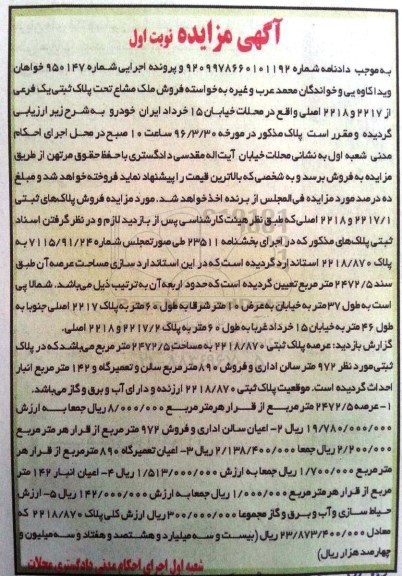 آگهی مزایده نوبت اول
به موجب دادنامه شماره ۹۲۰۹۹۷۸۶۶۰۱۰۱۱۹۲ و پرونده اجرایی شماره ۹۵۰۱۴۷ خواهان
ویدا کاوه یی و خواندگان محمد عرب و غیره به خواسته فروش ملک مشاع تحت پلاک ثبتی یک فرعی
از ۲۲۱۷ و ۲۲۱۸ اصلی واقع در محلات خیابان ۱۵ خرداد ایران خودرو به شرح زیر ارزیابی
گردیده و مقرر است پلاک مذکور در مورخه ۹۶/۳/۳۰ ساعت ۱۰ صبح در محل اجرای احکام
مدنی شعبه اول به نشانی محلات خیابان آیت اله مقدسی دادگستری با حفظ حقوق مرتهن از طریق
مزایده به فروش برسد و به شخصی که بالاترین قیمت را پیشنهاد نماید فروخته خواهد شد و مبلغ
ده درصد مورد مزایده فی المجلس از برنده اخذ خواهد شد. مورد مزایده فروش پلاک های ثبتی
۲۲۱۷/۱ و ۲۲۱۸ اصلی که طبق نظر هیئت کارشناسی پس از بازدید لازم و در نظر گرفتن اسناد
ثبتی پلاک های مذکور که در اجرای بخشنامه ۲۳۵۱۱ طی صورتمجلس شماره ۷۱۱۵/۹۱/۲۴ به
پلاک ۲۲۱۸/۸۷۰ استاندارد گردیده است که در این استاندارد سازی مساحت عرصه آن طبق
سند ۲۴۷۲/۵ متر مربع تعیین گردیده است که حدود اربعه آن به ترتیب ذیل می باشد. شمالا پی
است به طول ۳۷ متر به خیابان به عرض ۱۰ متر شرقا به طول ۶۰ متر به پلاک ۲۲۱۷ اصلی جنوبا به
طول ۴۶ متر به خیابان ۱۵ خرداد غربا به طول ۶۰ متر به پلاک ۲۲۱۷/۲ و ۲۲۱۸ اصلی.
گزارش بازدید: عرصه پلاک ثبتی ۲۲۱۸/۸۷۰ به مساحت ۲۴۷۲/۵ متر مربع می باشد که در پلاک
ثبتی مورد نظر ۹۷۲ متر سالن اداری و فروش ۸۹۰ متر مربع سالن و تعمیرگاه و ۱۴۲ متر مربع انبار
احداث گردیده است. موقعیت پلاک ثبتی ۲۲۱۸/۸۷۰ ارزنده و دارای آب و برق و گاز می باشد.
۱- عرصه ۲۴۷۲/۵ متر مربع از قرار هر متر مربع ۸/۰۰۰/۰۰۰ ریال جمعا به ارزش
۱۹/۷۸۰/۰۰۰/۰۰۰ ریال ۲- اعیان سالن اداری و فروش ۹۷۲ متر مربع از قرار هر متر مربع
۲/۲۰۰/۰۰۰ ریال جمعا ۲/۱۳۸/۴۰۰/۰۰۰ ریال ۳- اعیان تعمیرگاه ۸۹۰ متر مربع از قرار هر
متر مربع ۱/۷۰۰/۰۰۰ ریال جمعا به ارزش ۱/۵۱۳/۰۰۰/۰۰۰ ریال ۴- اعیان انبار ۱۴۲ متر
مربع از قرار هر متر مربع ۱/۰۰۰/۰۰۰ ریال جمعا به ارزش ۱۴۲/۰۰۰/۰۰۰ ریال ۵- ارزش
حیاط سازی و آب و برق و گاز مجموعا ۳۰۰/۰۰۰/۰۰۰ ریال ارزش کلی پلاک ۲۲۱۸/۸۷۰ که
معادل ۲۳/۸۷۳/۴۰۰/۰۰۰ ریال (بیست و سه میلیارد و هشتصد و هفتاد و سه میلیون و
چهارصد هزار ریال)
شعبه اول اجرای احکام مدنی دادگستری محلات